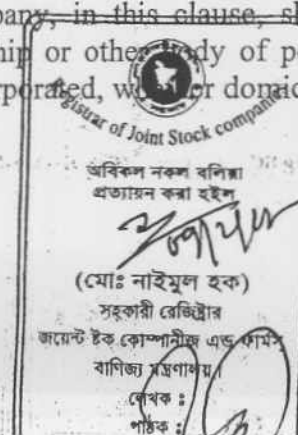 pany, in this clause, sh
hip or other body of p
rporated, w er domic
Registrar of Joint Stock companie
অবিকল নকল বলিয়া
প্রত্যায়ন করা হইল
(মোঃ নাইমুল হক)
সহকারী রেজিষ্ট্রার
জয়েন্ট ষ্টক কোম্পানীজ এন্ড ফার্মস
বাণিজ্য মন্ত্রণালয়।
লেখক :
পাঠক :